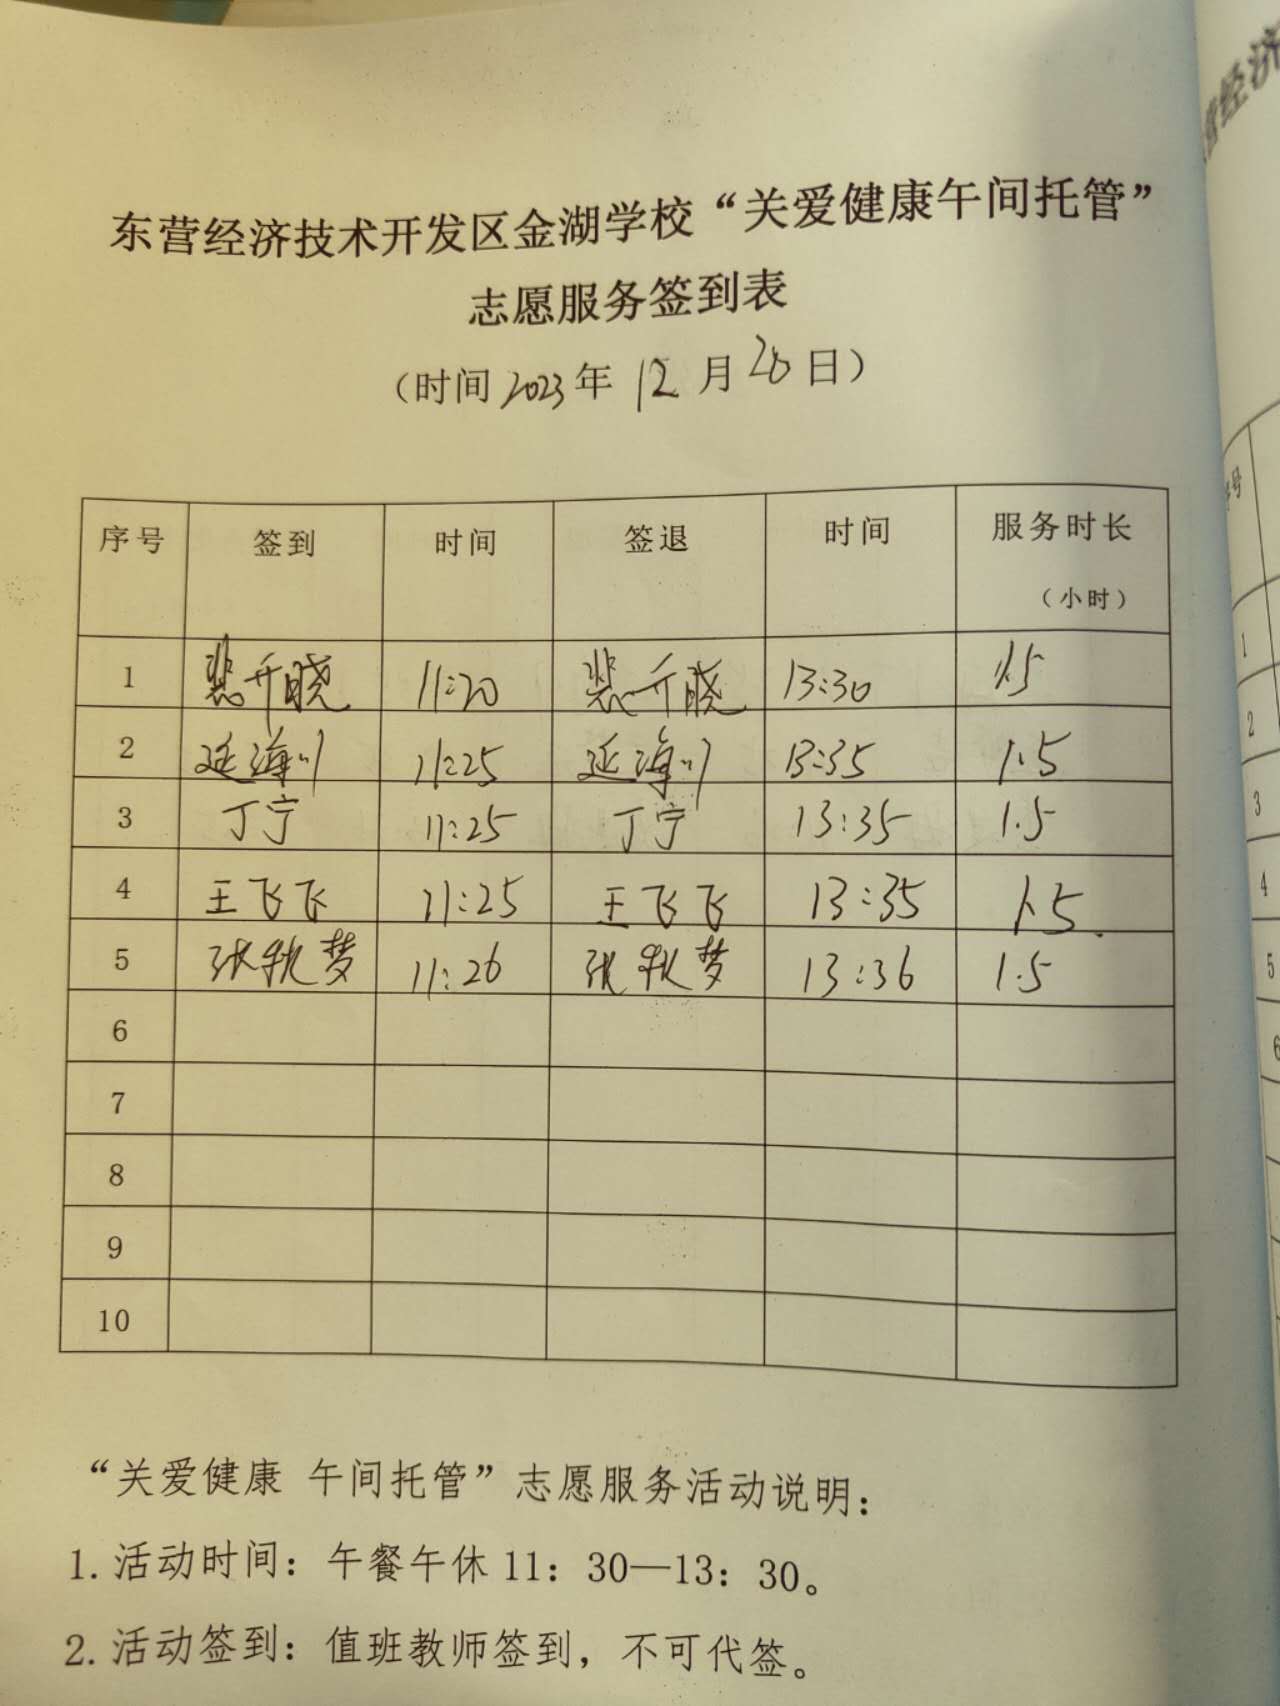 东营经济技术开发区金湖学校“关爱健康午间托管”
志愿服务签到表
（时间 2023 年 12 月 20 日）
序号 签到 时间 签退 时间 服务时长（小时）
1 裴开晓 11:20 裴开晓 13:30 1.5
2 延海川 11:25 延海川 13:35 1.5
3 丁宁 11:25 丁宁 13:35 1.5
4 王飞飞 11:25 王飞飞 13:35 1.5
5 张秋梦 11:26 张秋梦 13:36 1.5
6
7
8
9
10
“关爱健康 午间托管”志愿服务活动说明：
1. 活动时间：午餐午休 11：30—13：30。
2. 活动签到：值班教师签到，不可代签。
营经济
序号
1
2
3
4
5
6